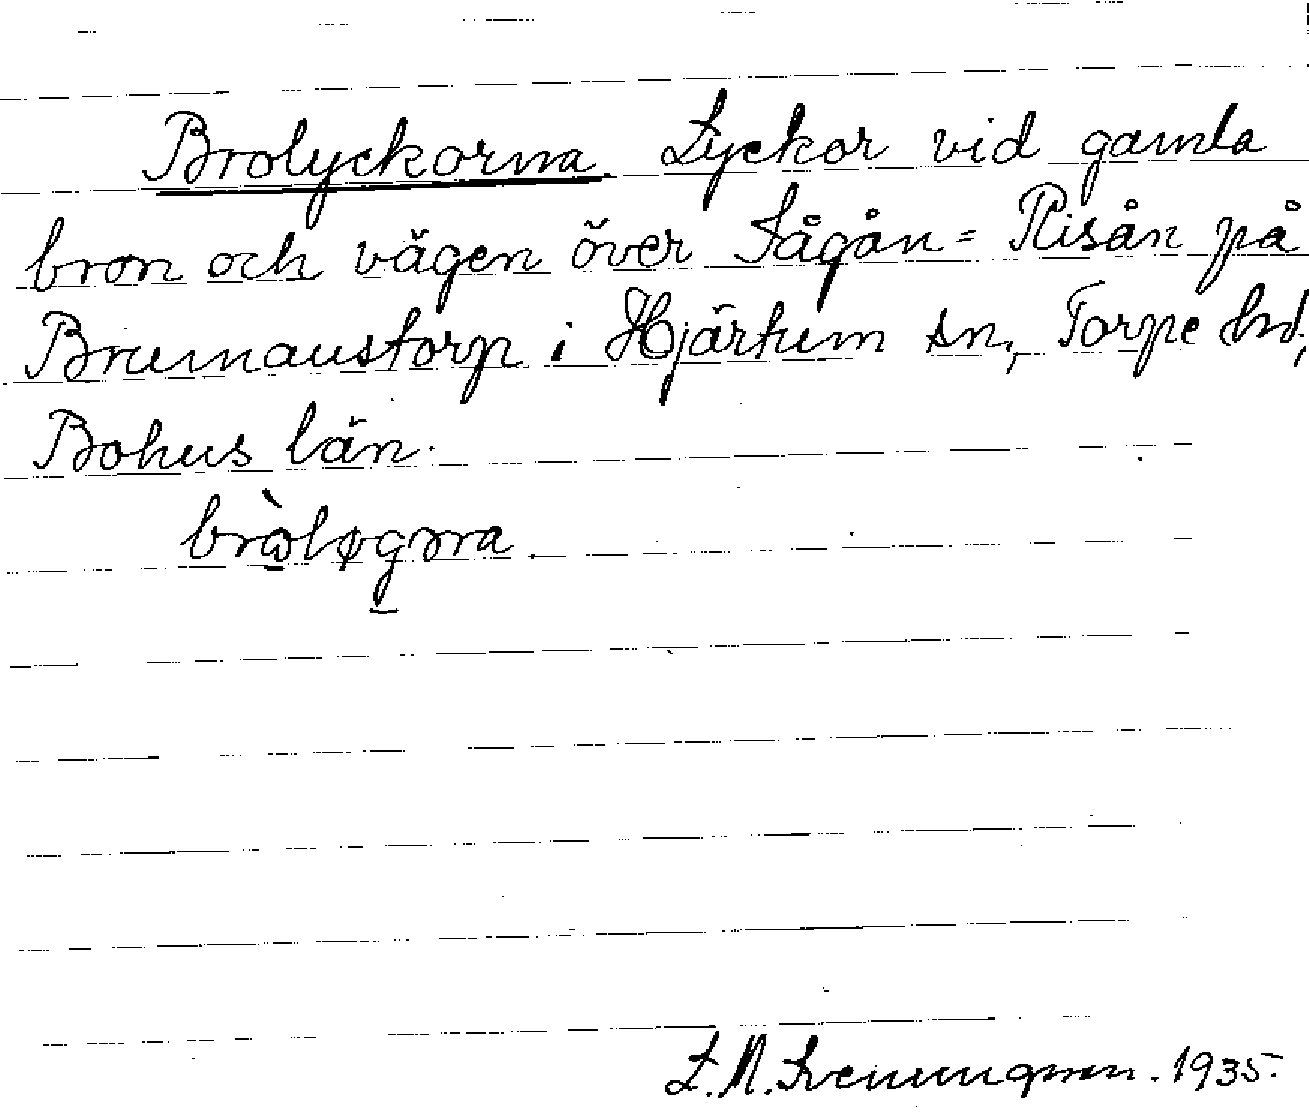 Brolyckorna. Lyckor vid gamla
bron och vägen över Sågån = Risån på
Brumaustorp i Hjärtum sn, Torpe hd,
Bohus län.
bròløgɔrna.
L.M. Svenungsson. 1935.